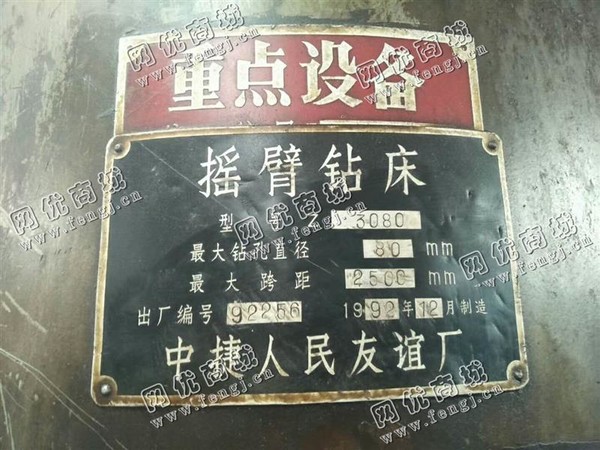 重点设备
摇臂钻床
型号 Z 3080
最大钻孔直径 80 mm
最大跨距 2500 mm
出厂编号 92256 1992年12月制造
中捷人民友谊厂
网优商城
www.fengj.cn
网优商城
www.fengj.cn
网优商城
www.fengj.cn
网优商城
www.fengj.cn
网优商城
www.fengj.cn
网优商城
www.fengj.cn
网优商城
www.fengj.cn
网优商城
www.fengj.cn